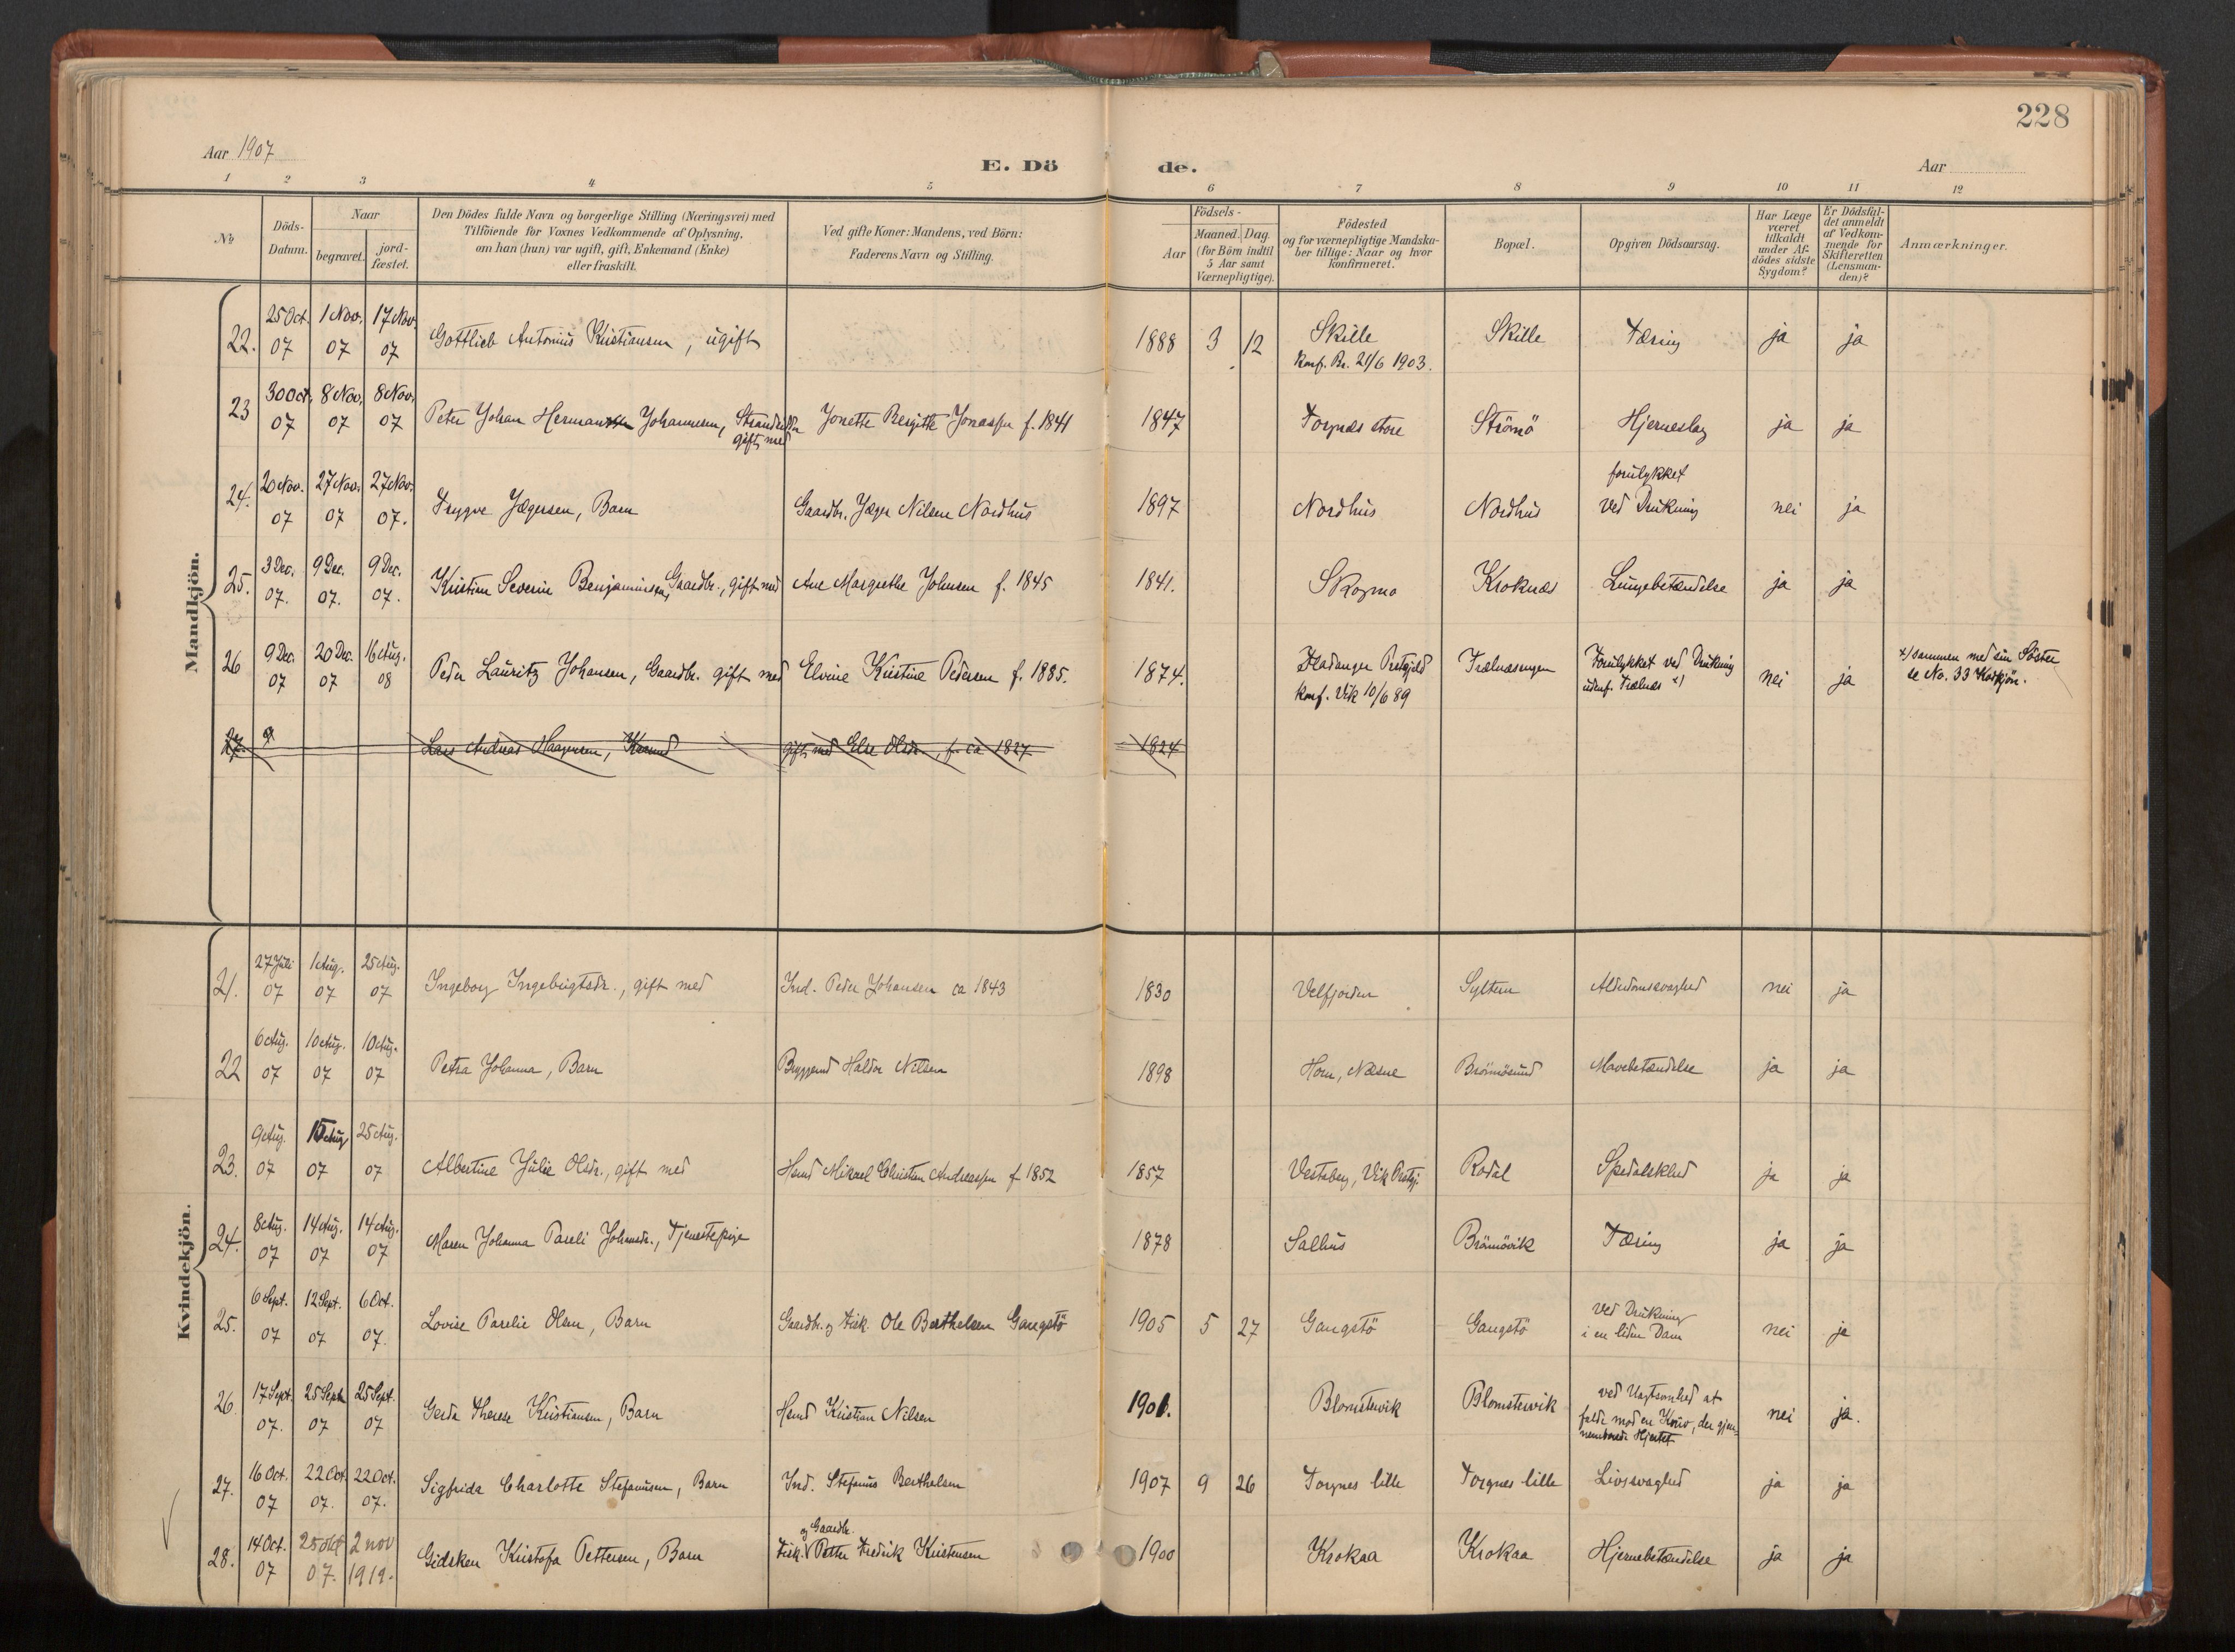 228
Aar 1907
E. Dö de.
Aar
1 2 3 4 5 6 7 8 9 10 11 12
No
Döds-Datum.
Naar
begravet.
jord-fæstet.
Den Dödes fulde Navn og borgerlige Stilling (Næringsvei) med
Tilföiende for Voxnes Vedkommende af Oplysning,
om han (hun) var ugift, gift, Enkemand (Enke)
eller fraskilt.
Ved gifte Koner: Mandens, ved Börn:
Faderens Navn og Stilling.
Födsels-
Aar
Maaned. Dag.
(for Börn indtil
5 Aar samt
Værnepligtige).
Födested
og for værnepligtige Mandska-
ber tillige: Naar og hvor
konfirmeret.
Bopæl.
Opgiven Dödsaarsag.
Har Læge
været
tilkaldt
under Af-
dödes sidste
Sygdom?
Er Dödsfal-
det anmeldt
af Vedkom-
mende for
Skifteretten
(Lensman-
den)?
Anmærkninger.
Mandkjön.
22. 25 Oct. 07 1 Nov. 07 17 Nov. 07 Gottlieb Antonius Kristiansen, ugift 1888 3 12 Skille Skille Tæring ja ja
konf. Br. 21/6 1903.
23 30 Oct. 07 8 Nov. 07 8 Nov. 07 Peter Johan Herman Johannesen, gift med Jonette Bergitte Jonassen f. 1841 1847 Torgnes store Strömö Hjerneslag ja ja
24. 20 Nov. 07 27 Nov. 07 27 Nov. 07. Trygve Jægersen, Barn Gaardbr. Jæger Nilsen Nordhus 1897 Nordhus Nordhus forulykket
ved Drukning nei ja
25. 3 Dec. 07. 9 Dec. 07. 9 Dec. 07. Kristian Severin Benjaminsen, Gaardbr., gift med Ane Margrethe Johnsen f. 1845 1841. Skogmo Kroknes Lungebetændelse ja ja
26 9 Dec. 07 20 Dec. 07 16 Aug. 08 Peder Lauritz Johansen, Gaardbr. gift med Elvine Kristine Pedersen f. 1885. 1874. Hadanger Prestgjeld
konf. Vik 10/6 89 Trælnesengen Forulykket ved Drukning
udenf. Trælnes x) nei ja x) sammen med sin Söster
se No. 33 Kvkjön.
27. 9 Lars Andreas Haagensen, Kaarmd gift med Else Olsdr., f. ca 1827 1824
Kvindekjön.
21. 27 Juli 07 1 Aug. 07 25 Aug. 07 Ingeborg Ingebrigtsdr., gift med Ind. Peder Johansen ca 1843 1830 Velfjorden Sylten Alderdomssvaghed nei ja
22 6 Aug. 07 10 Aug. 07 10 Aug. 07 Petra Johanna, Barn Byggemd Haldor Nilsen 1898 Horn, Næsne Brönnösund Mavebetændelse ja ja
23. 9 Aug. 07 15 Aug. 07 25 Aug. 07 Albertine Julie Olsdr., gift med Husmd Mikael Christian Andreassen f 1852 1857 Vesteberg, Vik Prstgj. Rodal Spedalskhed ja ja
24. 8 Aug. 07 14 Aug. 07 14 Aug. 07 Maren Johanna Pareli Johansdr., Tjenestepige 1878 Salhus Brönnövik Tæring ja ja
25. 6 Sept. 07 12 Sept. 07 6 Oct. 07. Lovise Parelie Olsen, Barn Gaardbr. og Fisk. Ole Berthelsen Gangstö 1905 5 27 Gangstö Gangstö ved Drukning
i en liden Dam nei ja
26 17 Sept. 07. 25 Sept. 07 25 Sept. 07 Gerda Therese Kristiansen, Barn Husmd Kristian Nilsen 1901. Blomstervik Blomstervik ved Uagtsomhed at
falde mod en Kniv, der gjen-
nemborede Hjertet nei ja.
27. 16 Oct. 07 22 Oct. 07. 22 Oct. 07. Sigfrida Charlotte Stefanusen, Barn Ind. Stefanus Berthelsen 1907 9 26 Torgnes lille Torgnes lille Livssvaghed ja ja
28. 14 Oct. 07 25 Okt 07. 2 nov 1919. Gidsken Kristofa Pettersen, Barn Fisk. og Gaardbr. Petter Fredrik Kristensen 1900 Krokaa Krokaa Hjernebetændelse ja ja